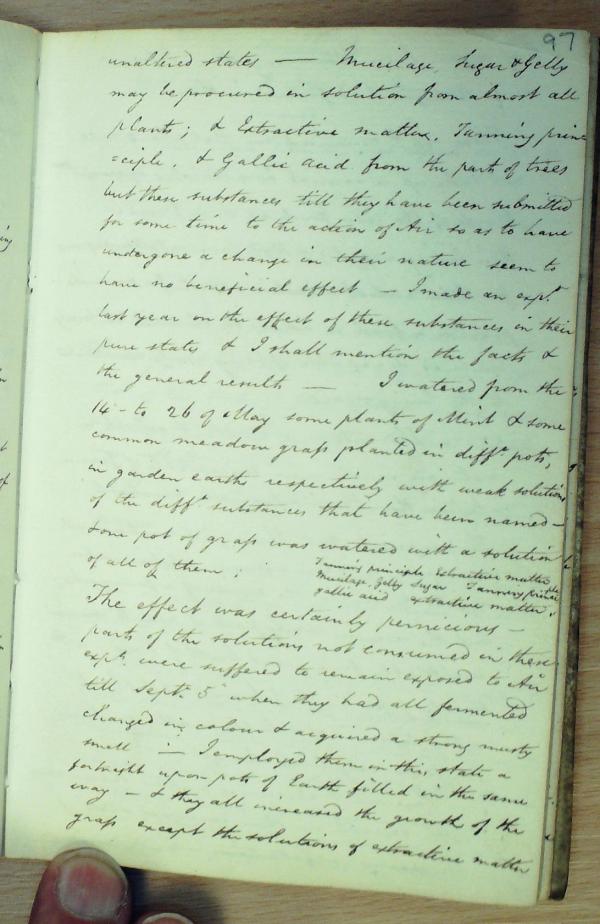 97
unaltered states — Mucilage, Sugar & Gelly
may be procured in solution from almost all
plants; & Extractive matter, Tanning prin=
=ciple, & Gallic acid from the parts of trees
but these substances till they have been submitted
for some time to the action of Air so as to have
undergone a change in their nature seem to
have no beneficial effect — I made an expt.
last year on the effect of these substances in their
pure states & I shall mention the facts &
the general results — I watered from the
14 - to 26 of May some plants of Mint & some
common meadow grass planted in difft. pots,
in garden earth respectively with weak solutions
of the difft. substances that have been named —
& one pot of grass was watered with a solution
of all of them;
Tanning principle Extractive matter
Mucilage, Gelly Sugar Tanning principle
gallic acid extractive matter.
The effect was certainly pernicious —
parts of the solutions not consumed in these
expts. were suffered to remain exposed to Air
till Septr. 5 when they had all fermented
changed in colour & acquired a strong musty
smell — I employed them in this state a
fortnight upon pots of Earth filled in the same
way — & they all increased the growth of the
grass except the solutions of extractive matter